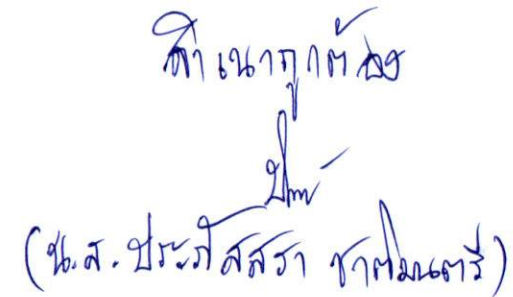 สำเนาถูกต้อง
(น.ส. ประภัสสรา ชาติมนตรี)